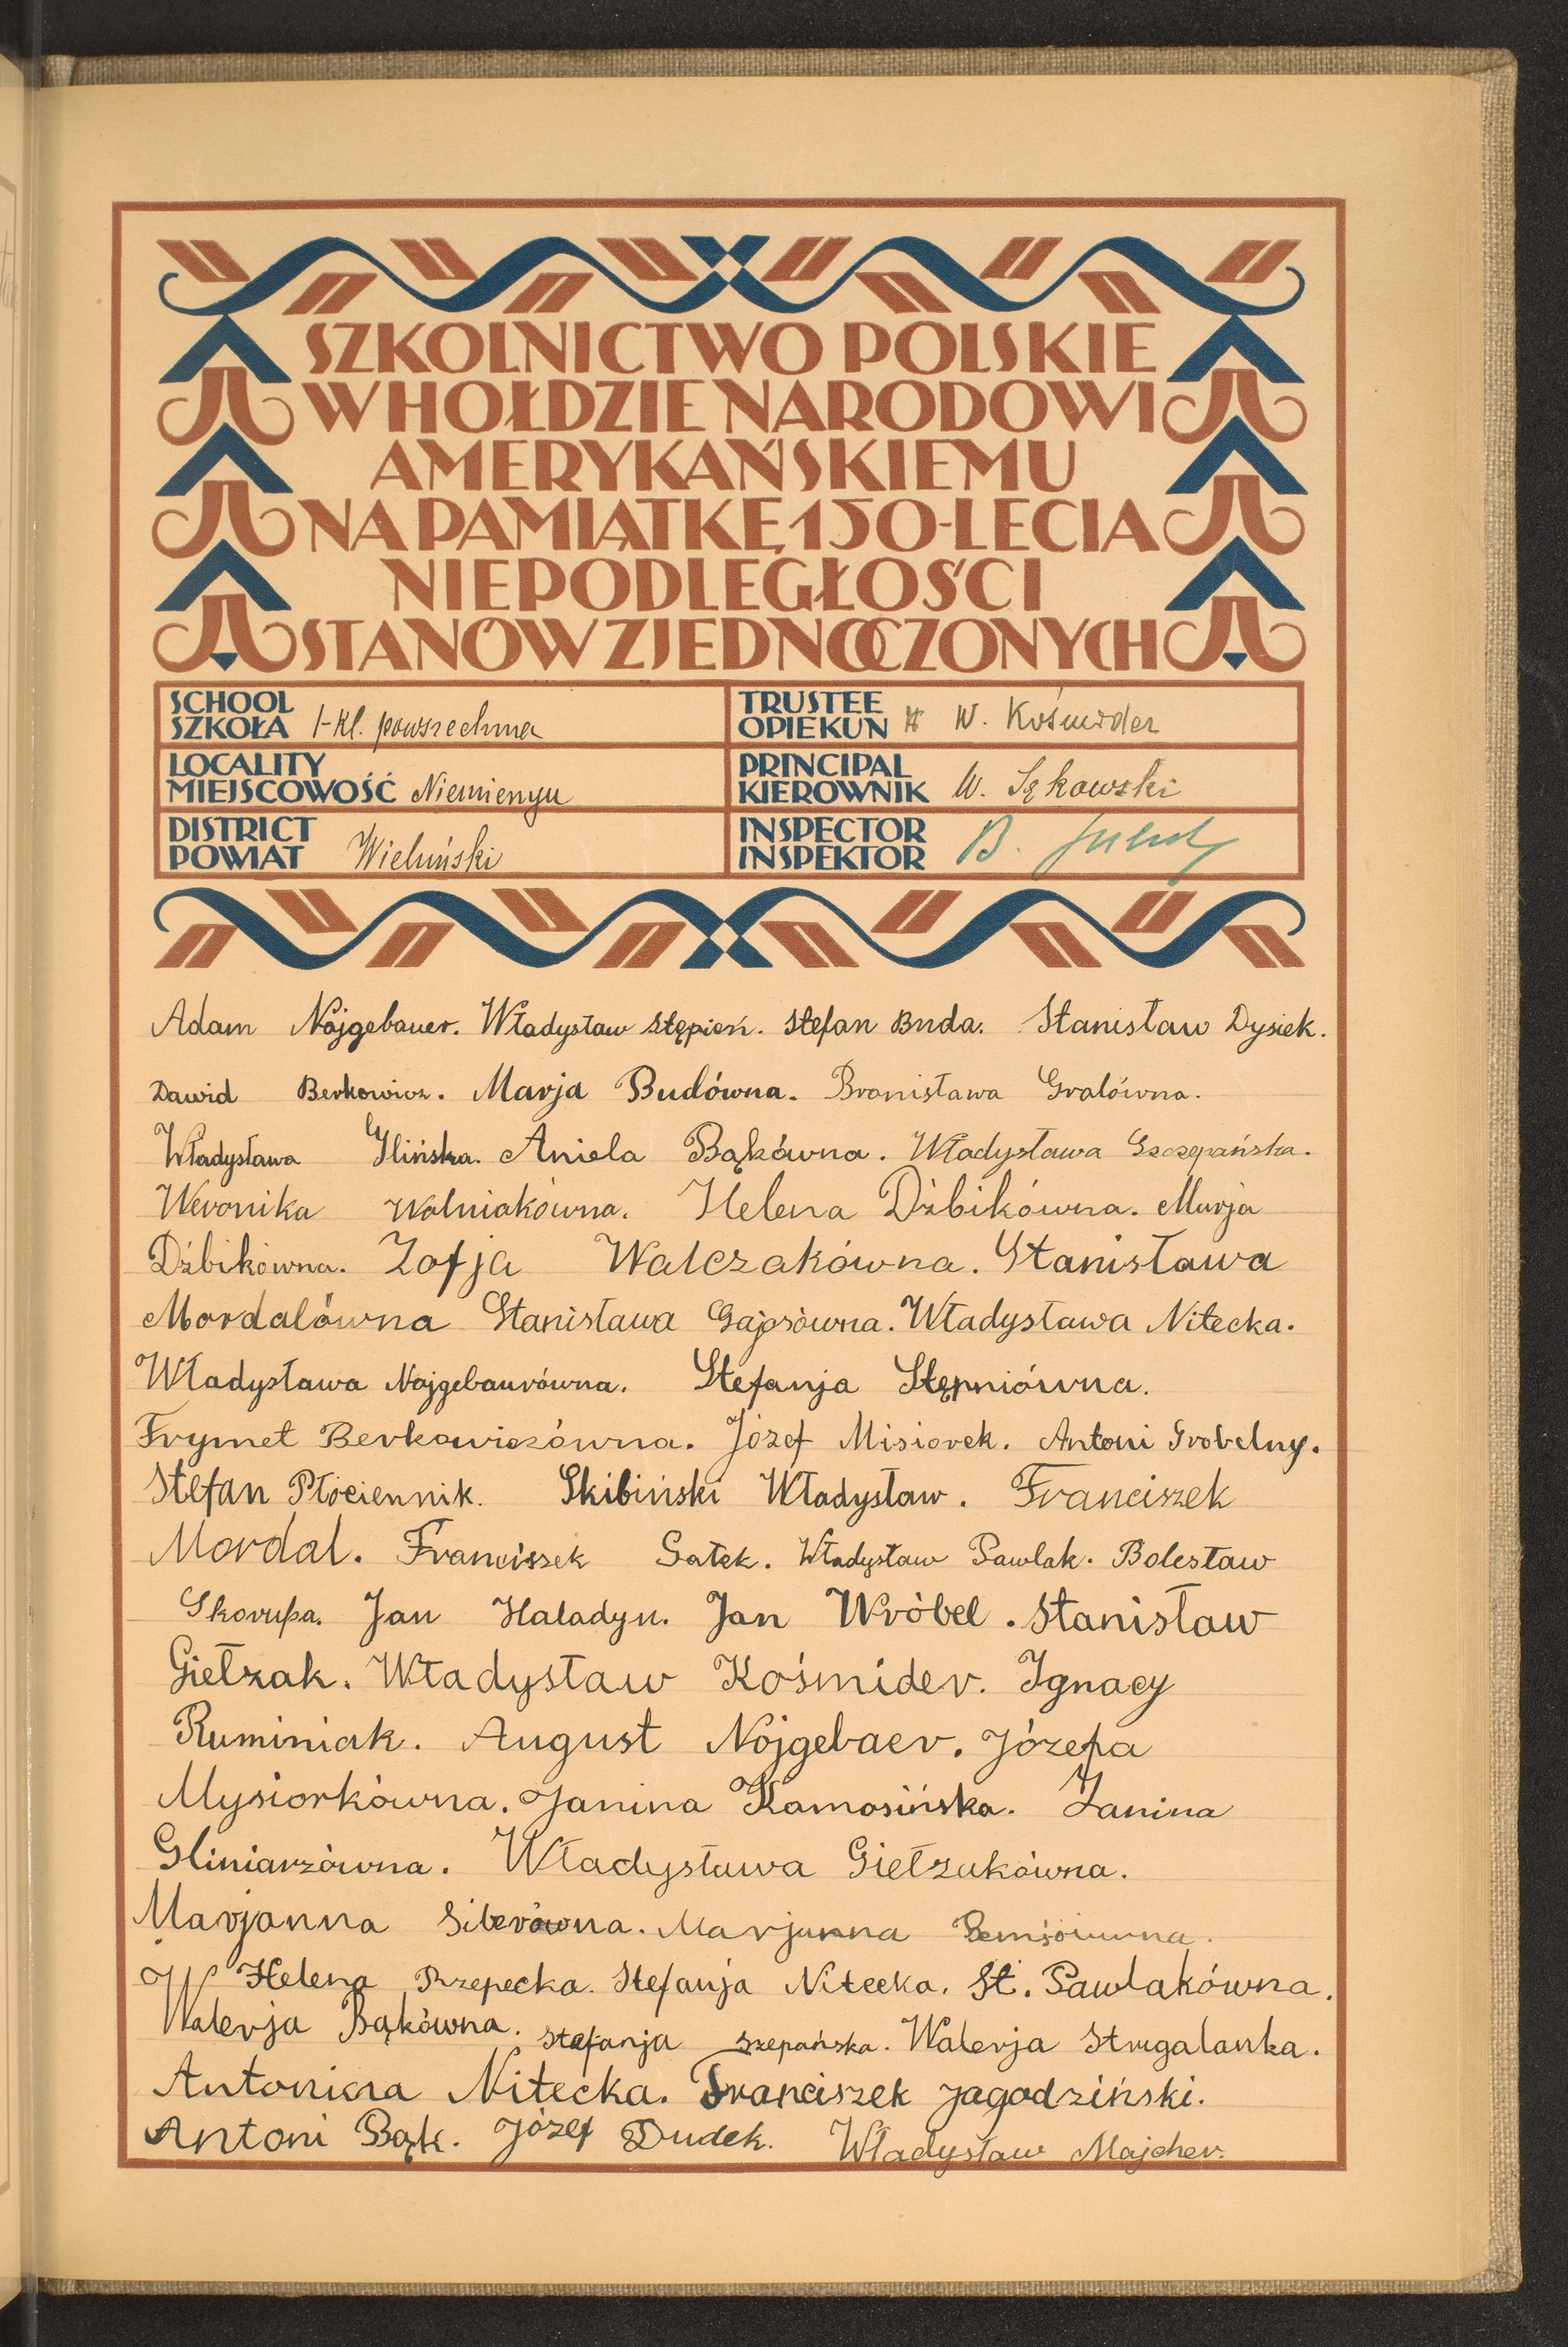 SZKOLNICTWO POLSKIE
W HOŁDZIE NARODOWI
AMERYKAŃSKIEMU
NA PAMIĄTKĘ 150-LECIA
NIEPODLEGŁOŚCI
STANÓW ZJEDNOCZONYCH
SCHOOL
SZKOŁA 1-kl. powszechna
TRUSTEE
OPIEKUN W. Kośmider
LOCALITY
MIEJSCOWOŚĆ Niemierzyn
PRINCIPAL
KIEROWNIK W. Sękowski
DISTRICT
POWIAT Wieluński
INSPECTOR
INSPEKTOR B.
Adam Nojgebauer. Władysław Stępień. Stefan Buda. Stanisław Dysiek.
Dawid Berkowicz. Marja Budówna. Bronisława Gralówna.
Władysława Glińska. Aniela Bąkówna. Władysława Szczepańska.
Weronika Wolniakówna. Helena Dźbikówna. Marja
Dźbikówna. Zofja Walczakówna. Stanisława
Mordalówna Stanisława Gajosówna. Władysława Nitecka.
Władysława Nojgebaurówna. Stefanja Stępniówna.
Frymet Berkowiczówna. Józef Misiorek. Antoni Grobelny.
Stefan Płóciennik. Skibiński Władysław. Franciszek
Mordal. Franciszek Gałek. Władysław Pawlak. Bolesław
Skorupa. Jan Haladyn. Jan Wróbel. Stanisław
Giełzak. Władysław Kośmider. Ignacy
Ruminiak. August Nojgebaer. Józefa
Mysiorkówna. Janina Kamosińska. Janina
Gliniarzówna. Władysława Giełzakówna.
Marjanna Siberówna. Marjanna
Helena Rzepecka. Stefanja Nitecka. St. Pawlakówna.
Walerja Bąkówna. Stefanja Szepańska. Walerja Strugalanka.
Antonina Nitecka. Franciszek Jagodziński.
Antoni Bąk. Józef Dudek. Władysław Majcher.